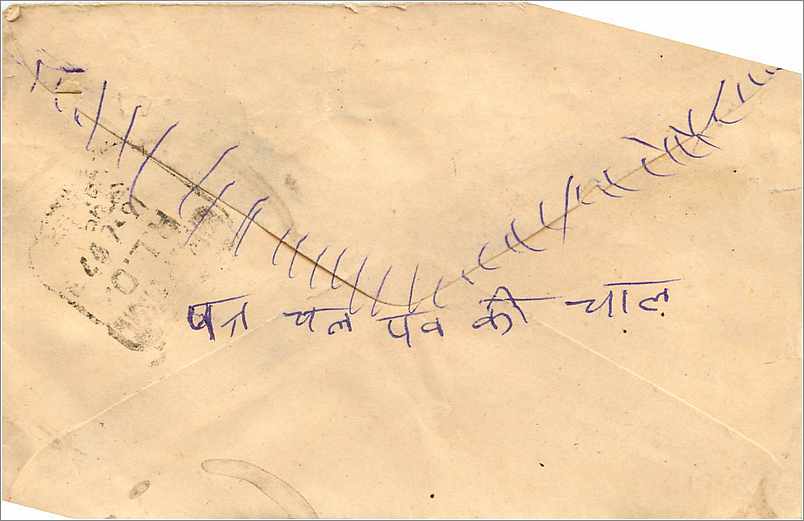 पत्र चल पव की चाल